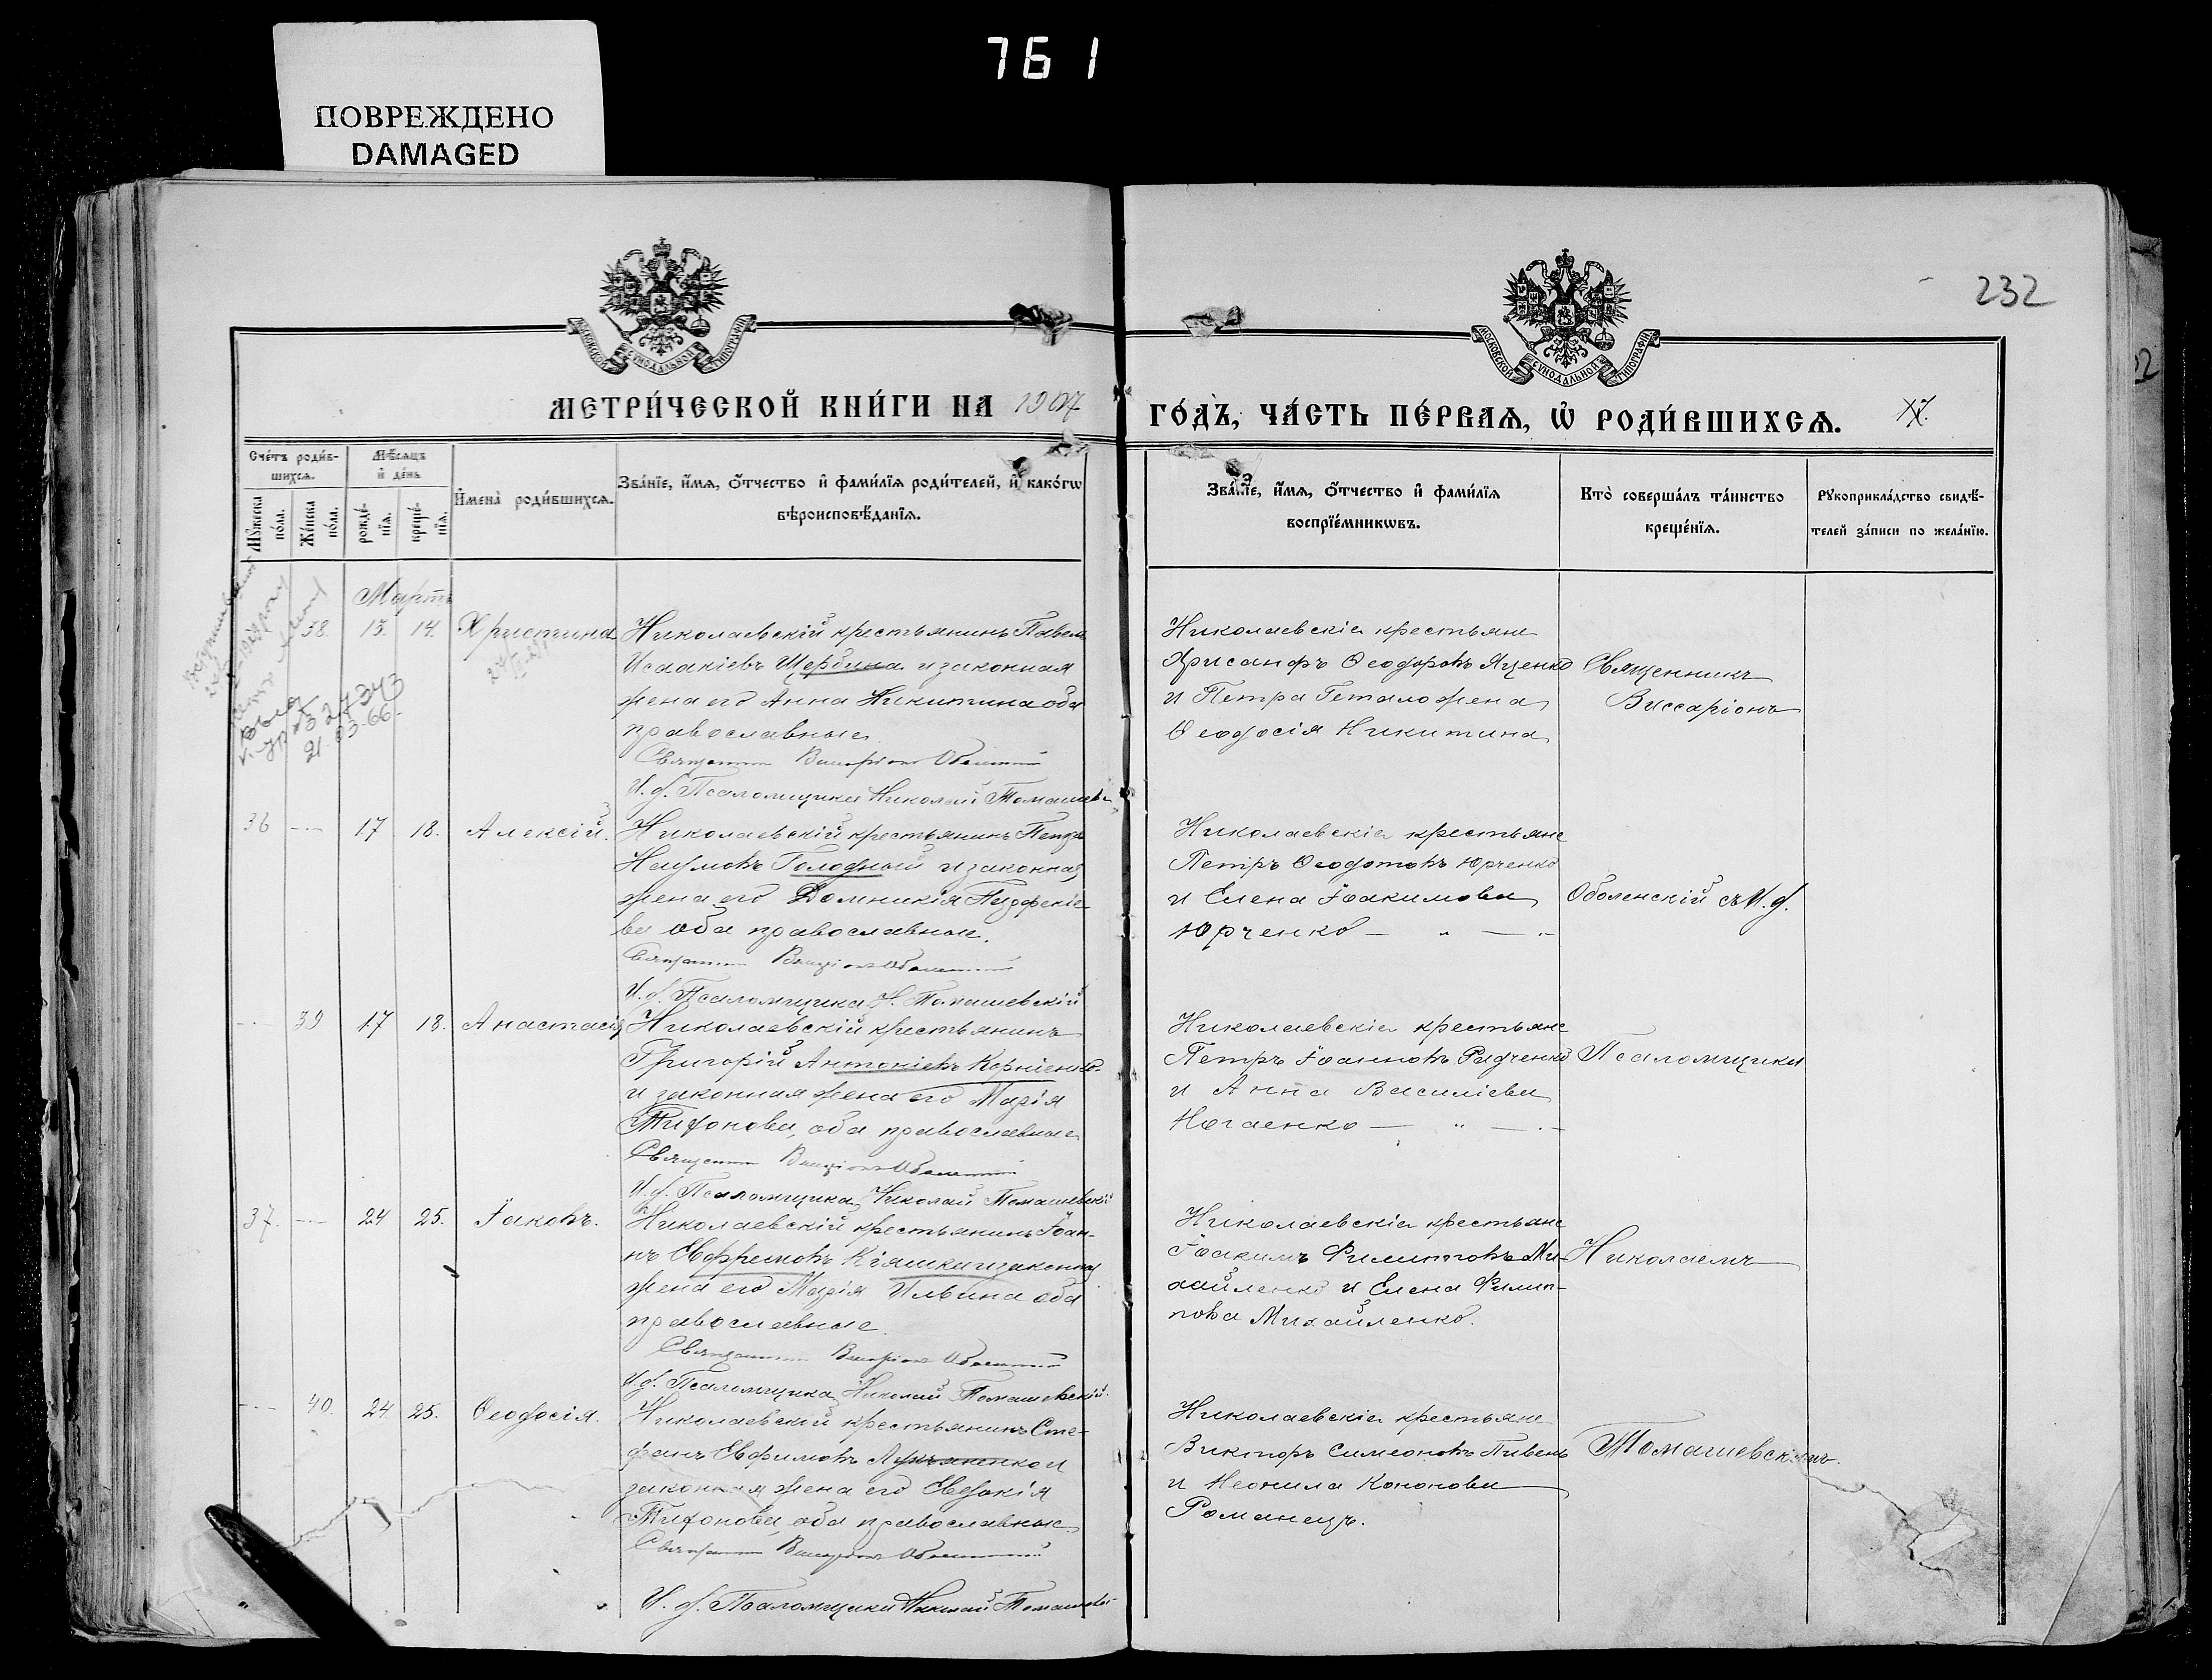 761
ПОВРЕЖДЕНО
DAMAGED
232
МОСКОВСКОЙ СѴНОДАЛЬНОЙ ТИПОГРАФІИ
МОСКОВСКОЙ СѴНОДАЛЬНОЙ ТИПОГРАФІИ
МЕТРИ́ЧЕСКОЙ КНИ́ГИ НА 1907
ГО́ДЪ, ЧА́СТЬ ПЕ́РВАѦ, Ѡ҆ РОДИ́ВШИХСѦ.
Сче́тъ роди́в-
шихсѧ.
Мꙋ́жеска по́ла.
Же́нска по́ла.
Мѣ́сѧцъ и҆ де́нь
рожде́-
нїѧ.
креще́-
нїѧ.
И҆мена̀ роди́вшихсѧ.
Зва́нїе, и҆́мѧ, ѻ҆́тчество и҆ фами́лїѧ роди́телей, и҆ како́гѡ
вѣроисповѣ́данїѧ.
Зва́нїе, и҆́мѧ, ѻ҆́тчество и҆ фами́лїѧ
воспрїе́мникѡвъ.
Кто̀ соверша́лъ та́инство
креще́нїѧ.
Рꙋкоприкла́дство свидѣ́-
телей за́писи по жела́нїю.
Мартъ
38. 13. 14. Христина
Николаевскій крестьянинъ Павелъ
Исаакіевъ Щербина и законная
жена его Анна Никитина оба
православные.
Священникъ Виссаріонъ Оболенскій
И. д. Псаломщика Николай Томашевск
Николаевскіе крестьяне
Хрисанфъ Ѳеодоровъ Яценко
и Петра Гетало жена
Ѳеодосія Никитина
Священникъ
Виссаріонъ
36 — 17 18. Алексій.
Николаевскій крестьянинъ Петръ
Наумовъ Голодный и законная
жена его Домникія
ва оба православные.
Священникъ Виссаріонъ Оболенскій
И. д. Псаломщика Н. Томашевскій
Николаевскіе крестьяне
Петръ Ѳеодотовъ Юрченко
и Елена Іоакимова
Юрченко — " —
Оболенскій съ И. д.
— 39 17 18. Анастасія
Николаевскій крестьянинъ
Григорій Антоніевъ Корніенко
и законная жена его Марія
Тихонова, оба православные
Священникъ Виссаріонъ Оболенскій
И. д. Псаломщика Николай Томашевскій
Николаевскіе крестьяне
Петръ Іоанновъ Радченко
и Анна Василіева
Ногаенко — " —
Псаломщика
37. — 24 25. Іаковъ.
Николаевскій крестьянинъ Іоан-
нъ Ефремовъ Кіяшка и законная
жена его Марія Ильина оба
православные.
Священникъ Виссаріонъ Оболенскій
И. д. Псаломщика Николай Томашевскій.
Николаевскіе крестьяне
Іоакимъ Филиповъ Ми-
хайленко и Елена Филип-
пова Михайленко.
Николаемъ
— 40. 24 25. Ѳеодосія.
Николаевскій крестьянинъ Сте-
фанъ Евфимовъ Лукьяненко и
законная жена его Евдокія
Тихонова, оба православные
Священникъ Виссаріонъ Оболенскій
И. д. Псаломщика Николай Томашевск
Николаевскіе крестьяне
Викторъ Симеоновъ Пивень
и Неонила Кононова
Романецъ.
Томашевскимъ.